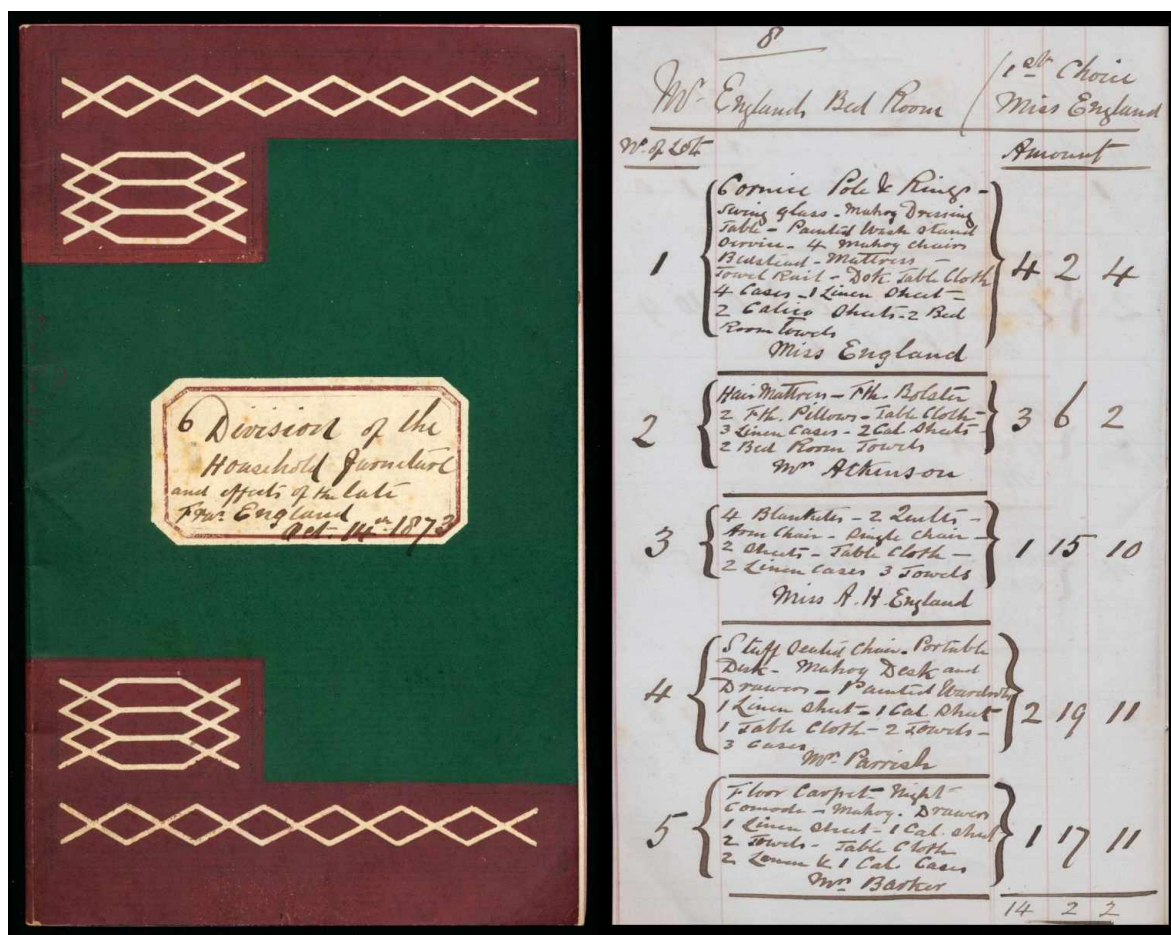 6 Division of the
Household furniture
and effects of the late
Fras. England
Oct. 14th 1873
8
Mr. Englands Bed Room
1st Choice
Miss England
No. of Lots
Amount
1
Cornice Pole & Rings -
Swing glass - Mahog Dressing
Table - Painted Wash stand
Service - 4 Mahog chairs
Bedstead - Mattress -
Towel Rail - Table Cloth
4 Cases - 1 Linen Sheet -
2 Calico Sheets - 2 Bed
Room Towels
Miss England
4 2 4
2
Hair Mattress - Fth. Bolster
2 Fth. Pillows - Table Cloth -
3 Linen Cases - 2 Cal. Sheets -
2 Bed Room Towels
Mr Atkinson
3 6 2
3
4 Blankets - 2 Quilts -
Arm Chair - Single Chair -
2 Sheets - Table Cloth -
2 Linen Cases 3 Towels
Miss A. H. England
1 15 10
4
Stuff Seated Chair - Portable
Desk - Mahog Desk and
Drawers - Painted Wardrobe
1 Linen Sheet - 1 Cal. Sheet
1 Table Cloth - 2 Towels -
3 Cases
Mr. Parrish
2 19 11
5
Floor Carpet - Night
Comode - Mahog. Drawers
1 Linen Sheet - 1 Cal. Sheet
2 Towels - Table Cloth
2 Linen & 1 Cal. Cases
Mr. Barker
1 17 11
14 2 2